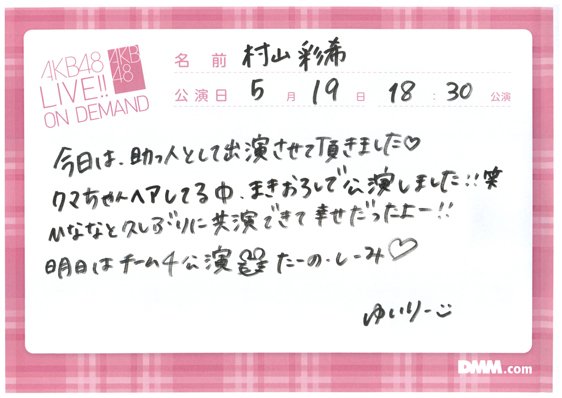 AKB48
LIVE!!
ON DEMAND
AKB
48
名前 村山彩希
公演日 5月19日 18:30公演
今日は、助っ人として出演させて頂きました♡
クマちゃんヘアしてる中、まきおろしで公演しました!!笑
ひななと久しぶりに共演できて幸せだったよー!!
明日はチーム4公演 たーの・しーみ♡
ゆいりー
DMM.com